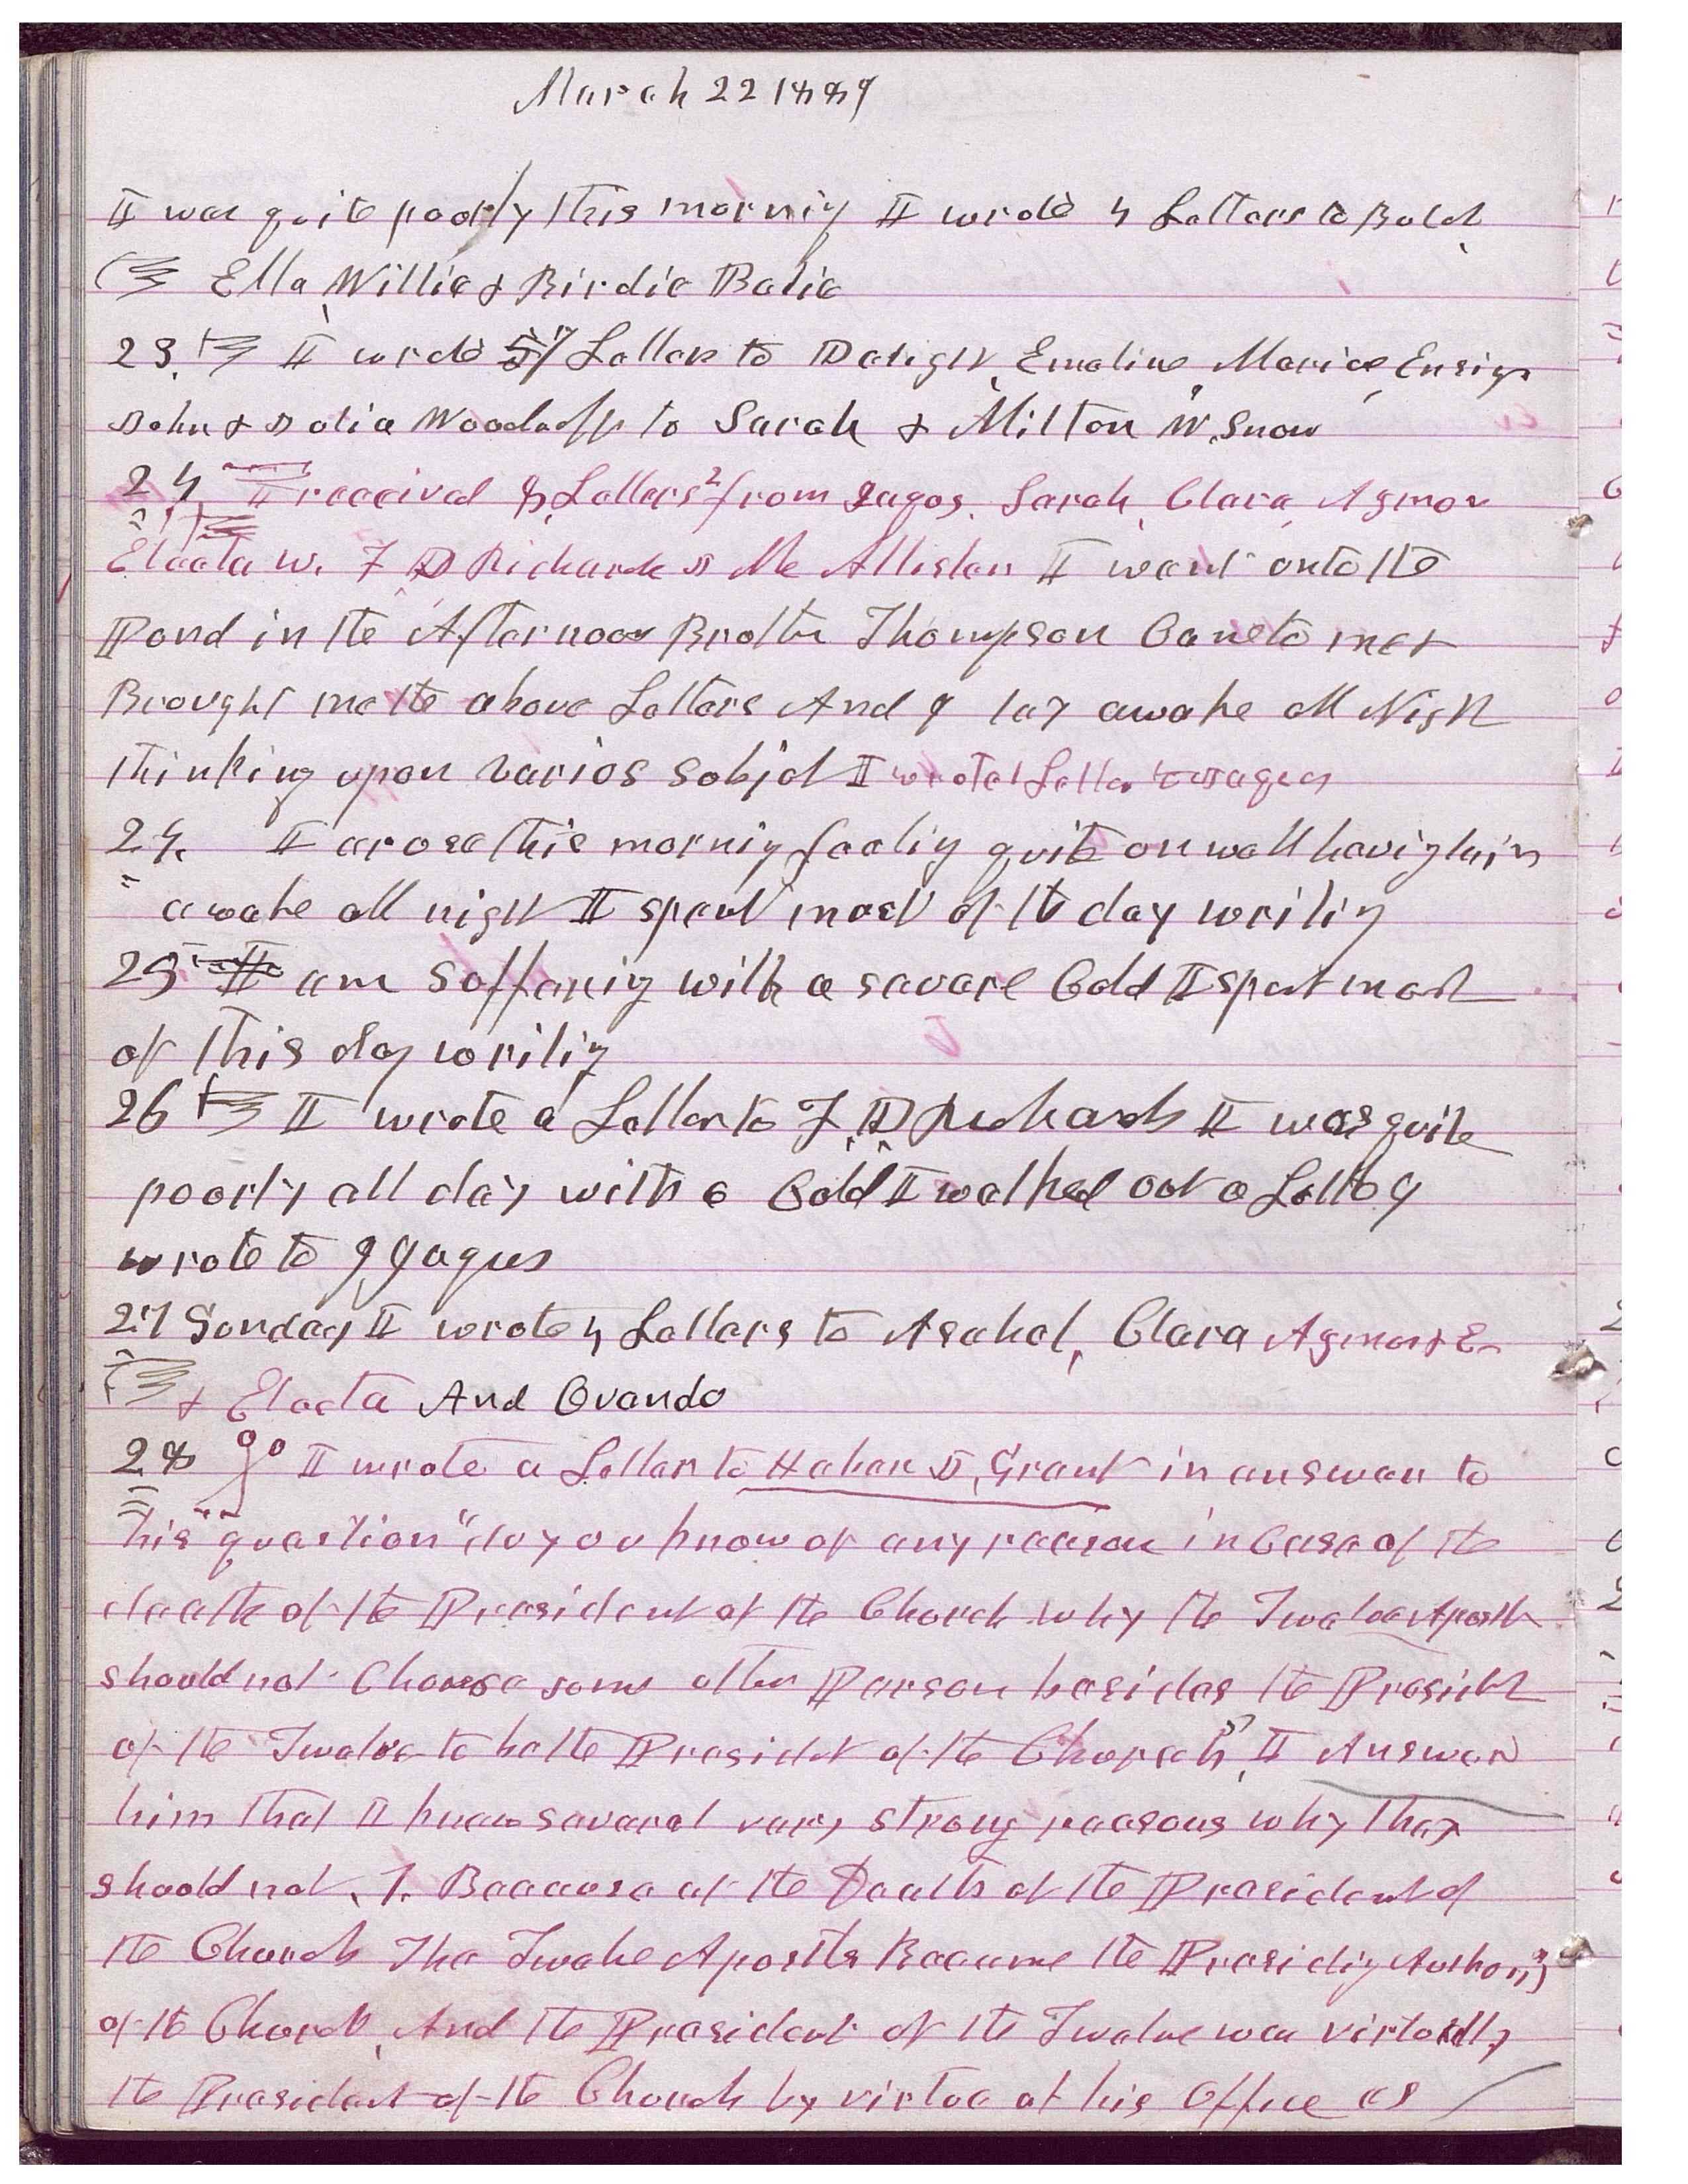 March 22 1889
I was quite poorly this morning I wrote 4 Letters to Bulah
Ella Willie & Birdie
23. I wrote 7 Letters to Emeline, Marion, Ensign
John & Woodruff to Sarah & Milton W. Snow
24 I received 8 Letters 2 from Sarah, Clara, Asmor
Electa W. F D Richards & Mc Allister I went onto the
Pond in the Afternoon Brother Thompson Came to me &
Brought me the above Letters And I lay awake all Night
thinking upon varios subjet I wrote 1 Letter to
24. I arose this morning feeling quite unwell having lain
awake all night I spent most of the day writing
25 I am Suffering with a severe Cold I spent most
of this day writing
26 I wrote a Letter to F. D Richards I was quite
poorly all day with a Cold I walked out a Little I
wrote to
27 Sunday I wrote 4 Letters to Asahel, Clara Asmor & E
& Electa And Ovando
28 I wrote a Letter to Heber J, Grant in answer to
his question "do you know of any reason in Case of the
death of the President of the Church why the Twelve Apostles
should not Choose some other Person besides the President
of the Twelve to be the President of the Church", I Answer
him that I knew several very strong reasons why they
should not, 1. Because at the Death of the President of
the Church The Twelve Apostls Became the Presiding Authority
of the Church, And the President of the Twelve was virtually
the President of the Church by virtue of his Office as